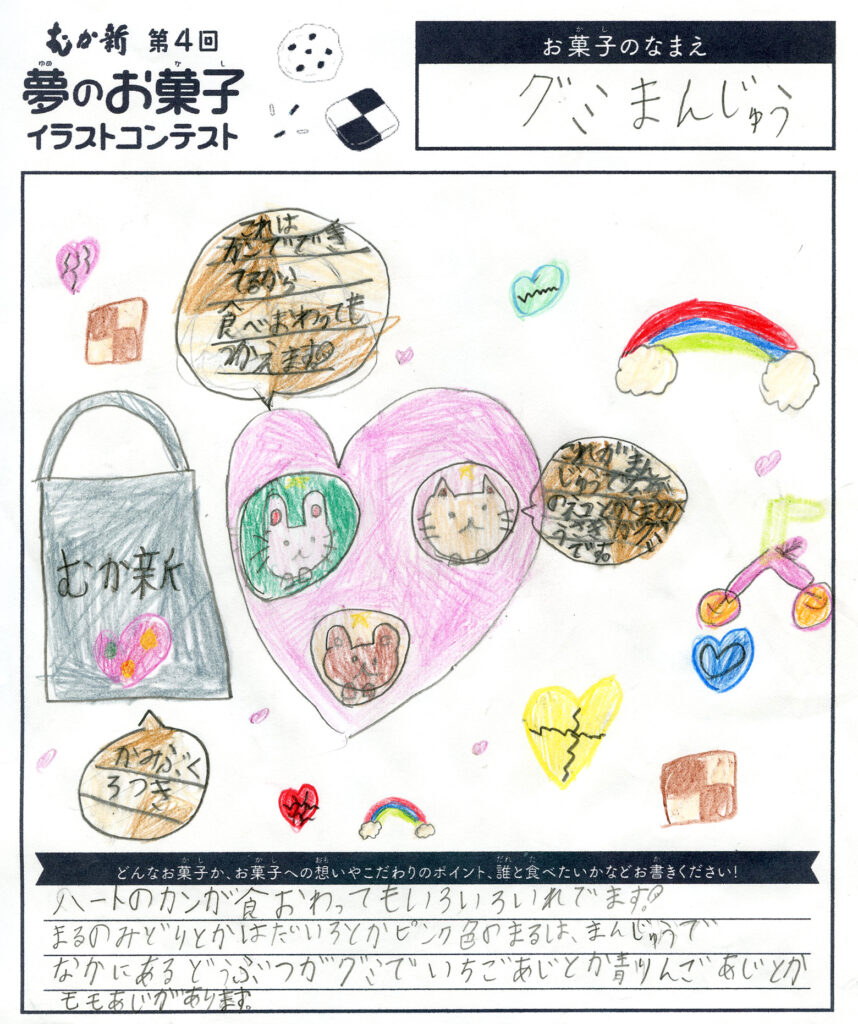 むか新 第4回
夢のお菓子
イラストコンテスト
お菓子のなまえ
グミまんじゅう
これは
カンでできてるから
食べおわっても
つかえます。
これがまん
じゅうで
むか新
かみぶく
ろつき
どんなお菓子か、お菓子への想いやこだわりのポイント、誰と食べたいかなどお書きください!
ハートのカンが食おわってもいろいろいれでます。
まるのみどりとかはだいろとかピンク色のまるは、まんじゅうで
なかにあるどうぶつがグミでいちごあじとか青りんごあじとか
ももあじがあります。